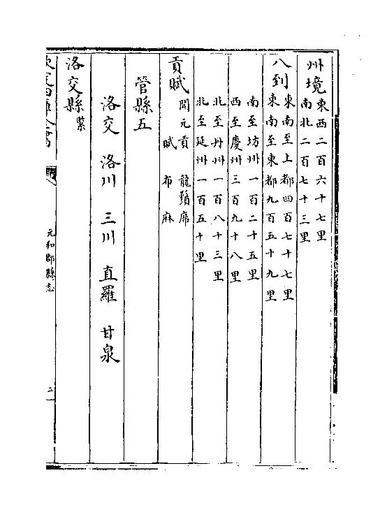 州境東西二百六十七里
南北二百七十三里
八到東南至上都四百七十七里
東南至東都九百五十九里
南至坊州一百二十五里
西至慶州三百九十八里
北至丹州一百八十三里
北至延州一百五十里
貢賦開元貢 龍鬚席
賦 布麻
管縣五
洛交 洛川 三川 直羅 甘泉
洛交縣緊
元和郡縣志